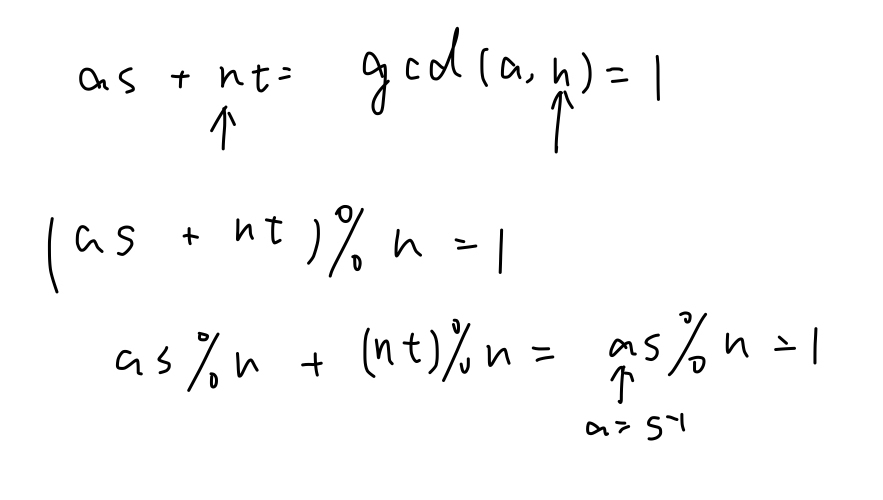 as + nt = gcd(a, n) = 1
(as + nt) % n = 1
as % n + (nt) % n = as % n = 1
a = s⁻¹